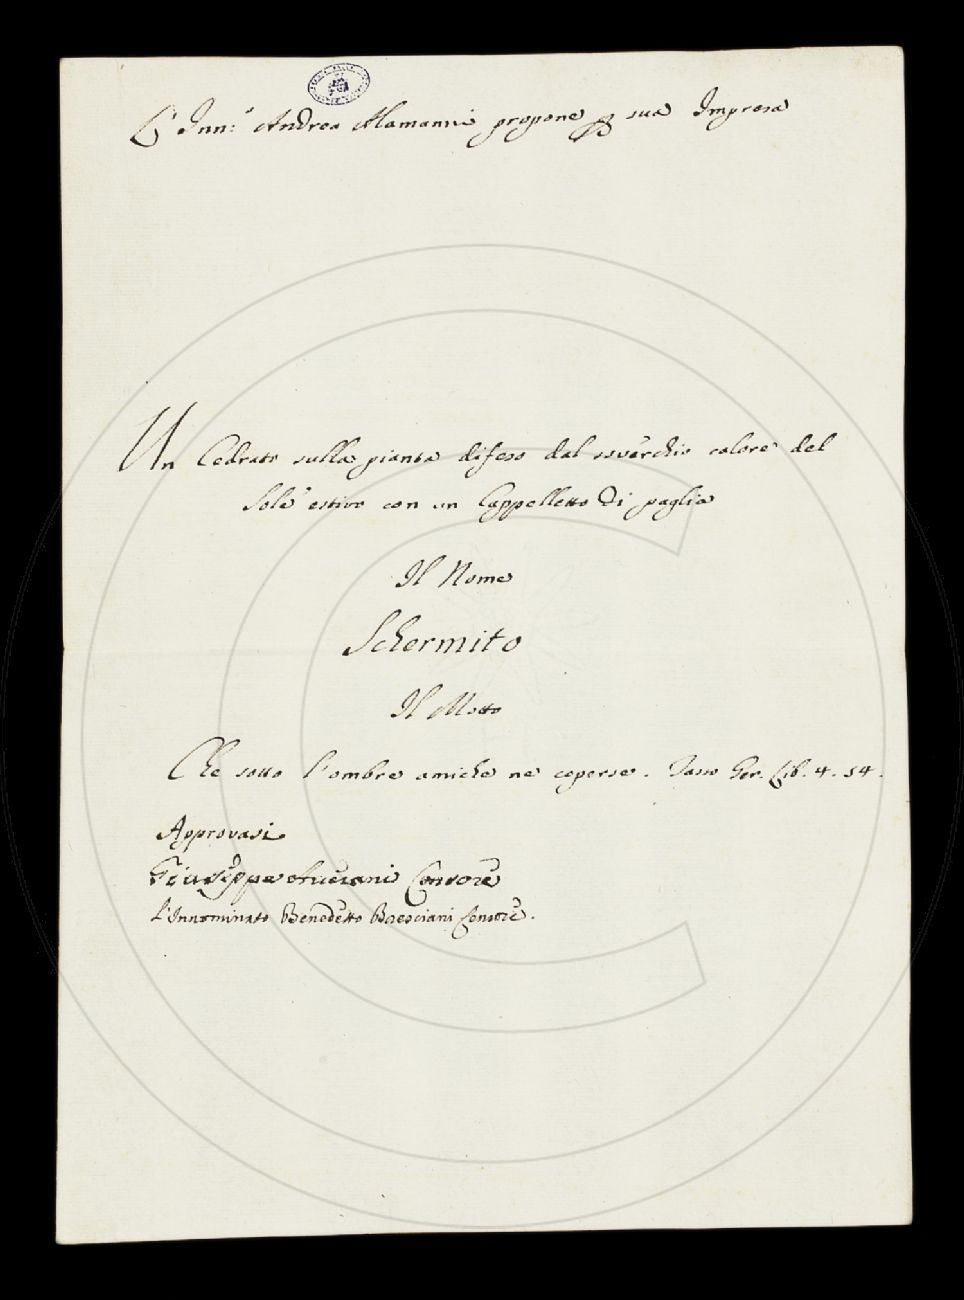 L'Inn: Andrea Alamanni propone p sua Impresa
Un Cedrato sulla pianta difeso dal soverchio calore del
Sole estivo con un Cappelletto di paglia
Il Nome
Schermito
Il Motto
Che sotto l'ombre amiche ne coperse. Tasso Ger. Lib. 4. 54.
Approvasi
Giuseppe Averani Censore
L'Innominato Benedetto Bresciani Censore.